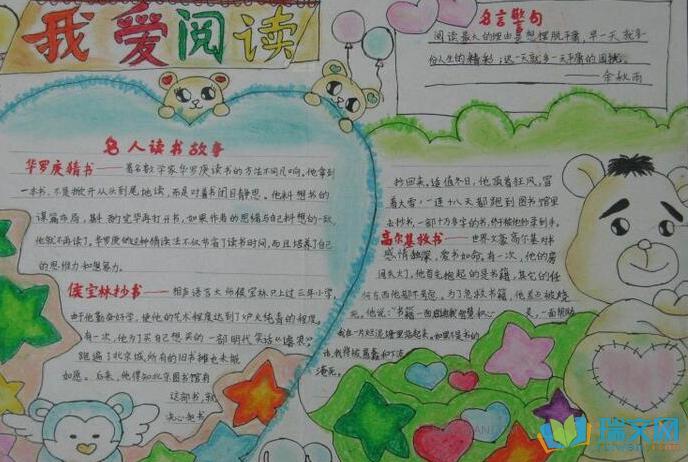 我爱阅读
名言警句
阅读最大的理由是想摆脱平庸，早一天就多
一份人生的精彩；迟一天就多一天平庸的困扰。
——余秋雨
名人读书故事
华罗庚猜书——著名数学家华罗庚读书的方法不同凡响。他拿到
一本书，不是翻开从头到尾地读，而是对着书闭目静思。他料想书的
谋篇布局，斟酌完毕再打开书，如果作者的思绪与自己料想的一致，
他就不再读了。华罗庚的这种猜读法不仅节省了读书时间，而且培养了自己
的思维力和想象力。
侯宝林抄书——相声语言大师侯宝林只上过三年小学，
由于他勤奋好学，使他的艺术程度达到了炉火纯青的程度。
有一次，他为了买自己想买的一部明代笑话《谑浪》
跑遍了北京城所有的旧书摊也未能
如愿。后来，他得知北京图书馆有
这部书，就
决心把书
抄回来。适值冬日，他顶着狂风，冒
着大雪，一连十八天都跑到图书馆里
去抄书，一部十万多字的书，终于被他抄录到手。
高尔基救书——世界文豪高尔基对书
感情独深，爱书如命。有一次，他的房
间失火了，他首先抱起的是书籍，其它的任
何东西他都不考虑。为了急救书籍，他差点被烧
死。他说："书籍一面启示我智慧和心
是，一面帮助
我在一片烂泥塘里站起来。如果不是书的
话，我得被愚蠢和下流
淹死。
瑞文网